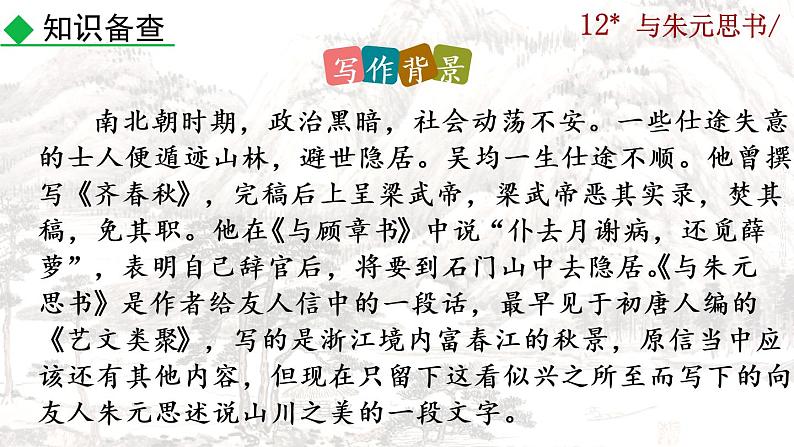 知识备查
12* 与朱元思书/
写作背景
南北朝时期，政治黑暗，社会动荡不安。一些仕途失意
的士人便遁迹山林，避世隐居。吴均一生仕途不顺。他曾撰
写《齐春秋》，完稿后上呈梁武帝，梁武帝恶其实录，焚其
稿，免其职。他在《与顾章书》中说“仆去月谢病，还觅薜
萝”，表明自己辞官后，将要到石门山中去隐居。《与朱元
思书》是作者给友人信中的一段话，最早见于初唐人编的
《艺文类聚》，写的是浙江境内富春江的秋景，原信当中应
该还有其他内容，但现在只留下这看似兴之所至而写下的向
友人朱元思述说山川之美的一段文字。